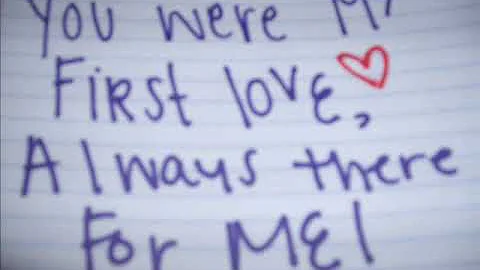 You were My
First love,
Always there
For ME!